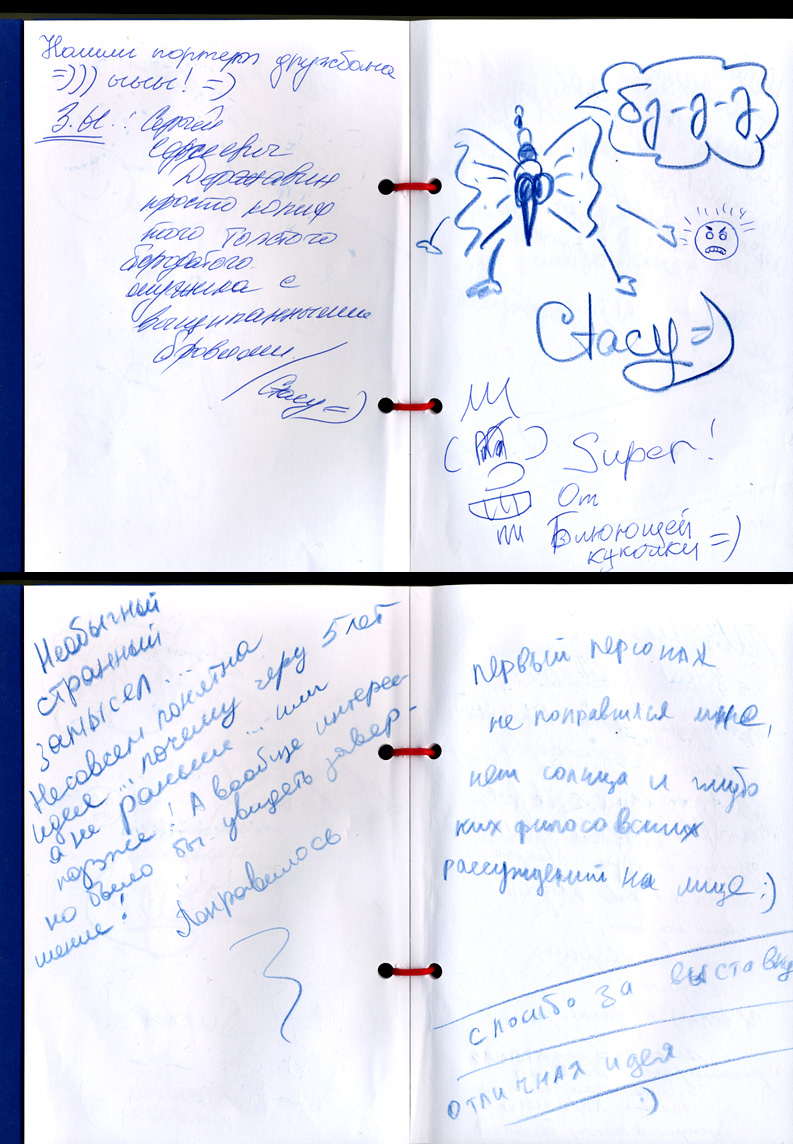 Нашли портерт дружбана
=))) ыыы! =)
З.Ы.: Сергей
Сергеевич
Державин
просто копия
того толстого
бородатого
мужика с
выщипанными
бровями
/Стасу=)
бз-з-з
Стасу=)
Super!
От
Блюющей
куколки =)
Необычный
странный
замысел...
Несовсем понятна
идея... почему черу 5 лет
а не раньше... или
позже! А вообще интерес
но было бы увидеть завер-
шение!
Понравилось
первый персонаж
не понравился мне,
нет солнца и глубо
ких философских
рассуждений на лице :)
спасибо за выставку
отличная идея
:)